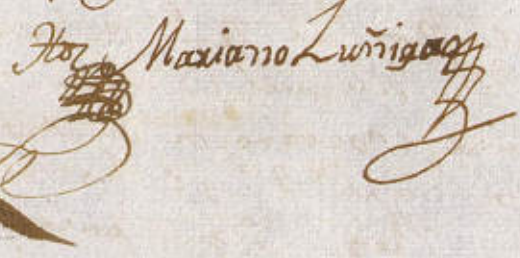 Mariano Zuñiga